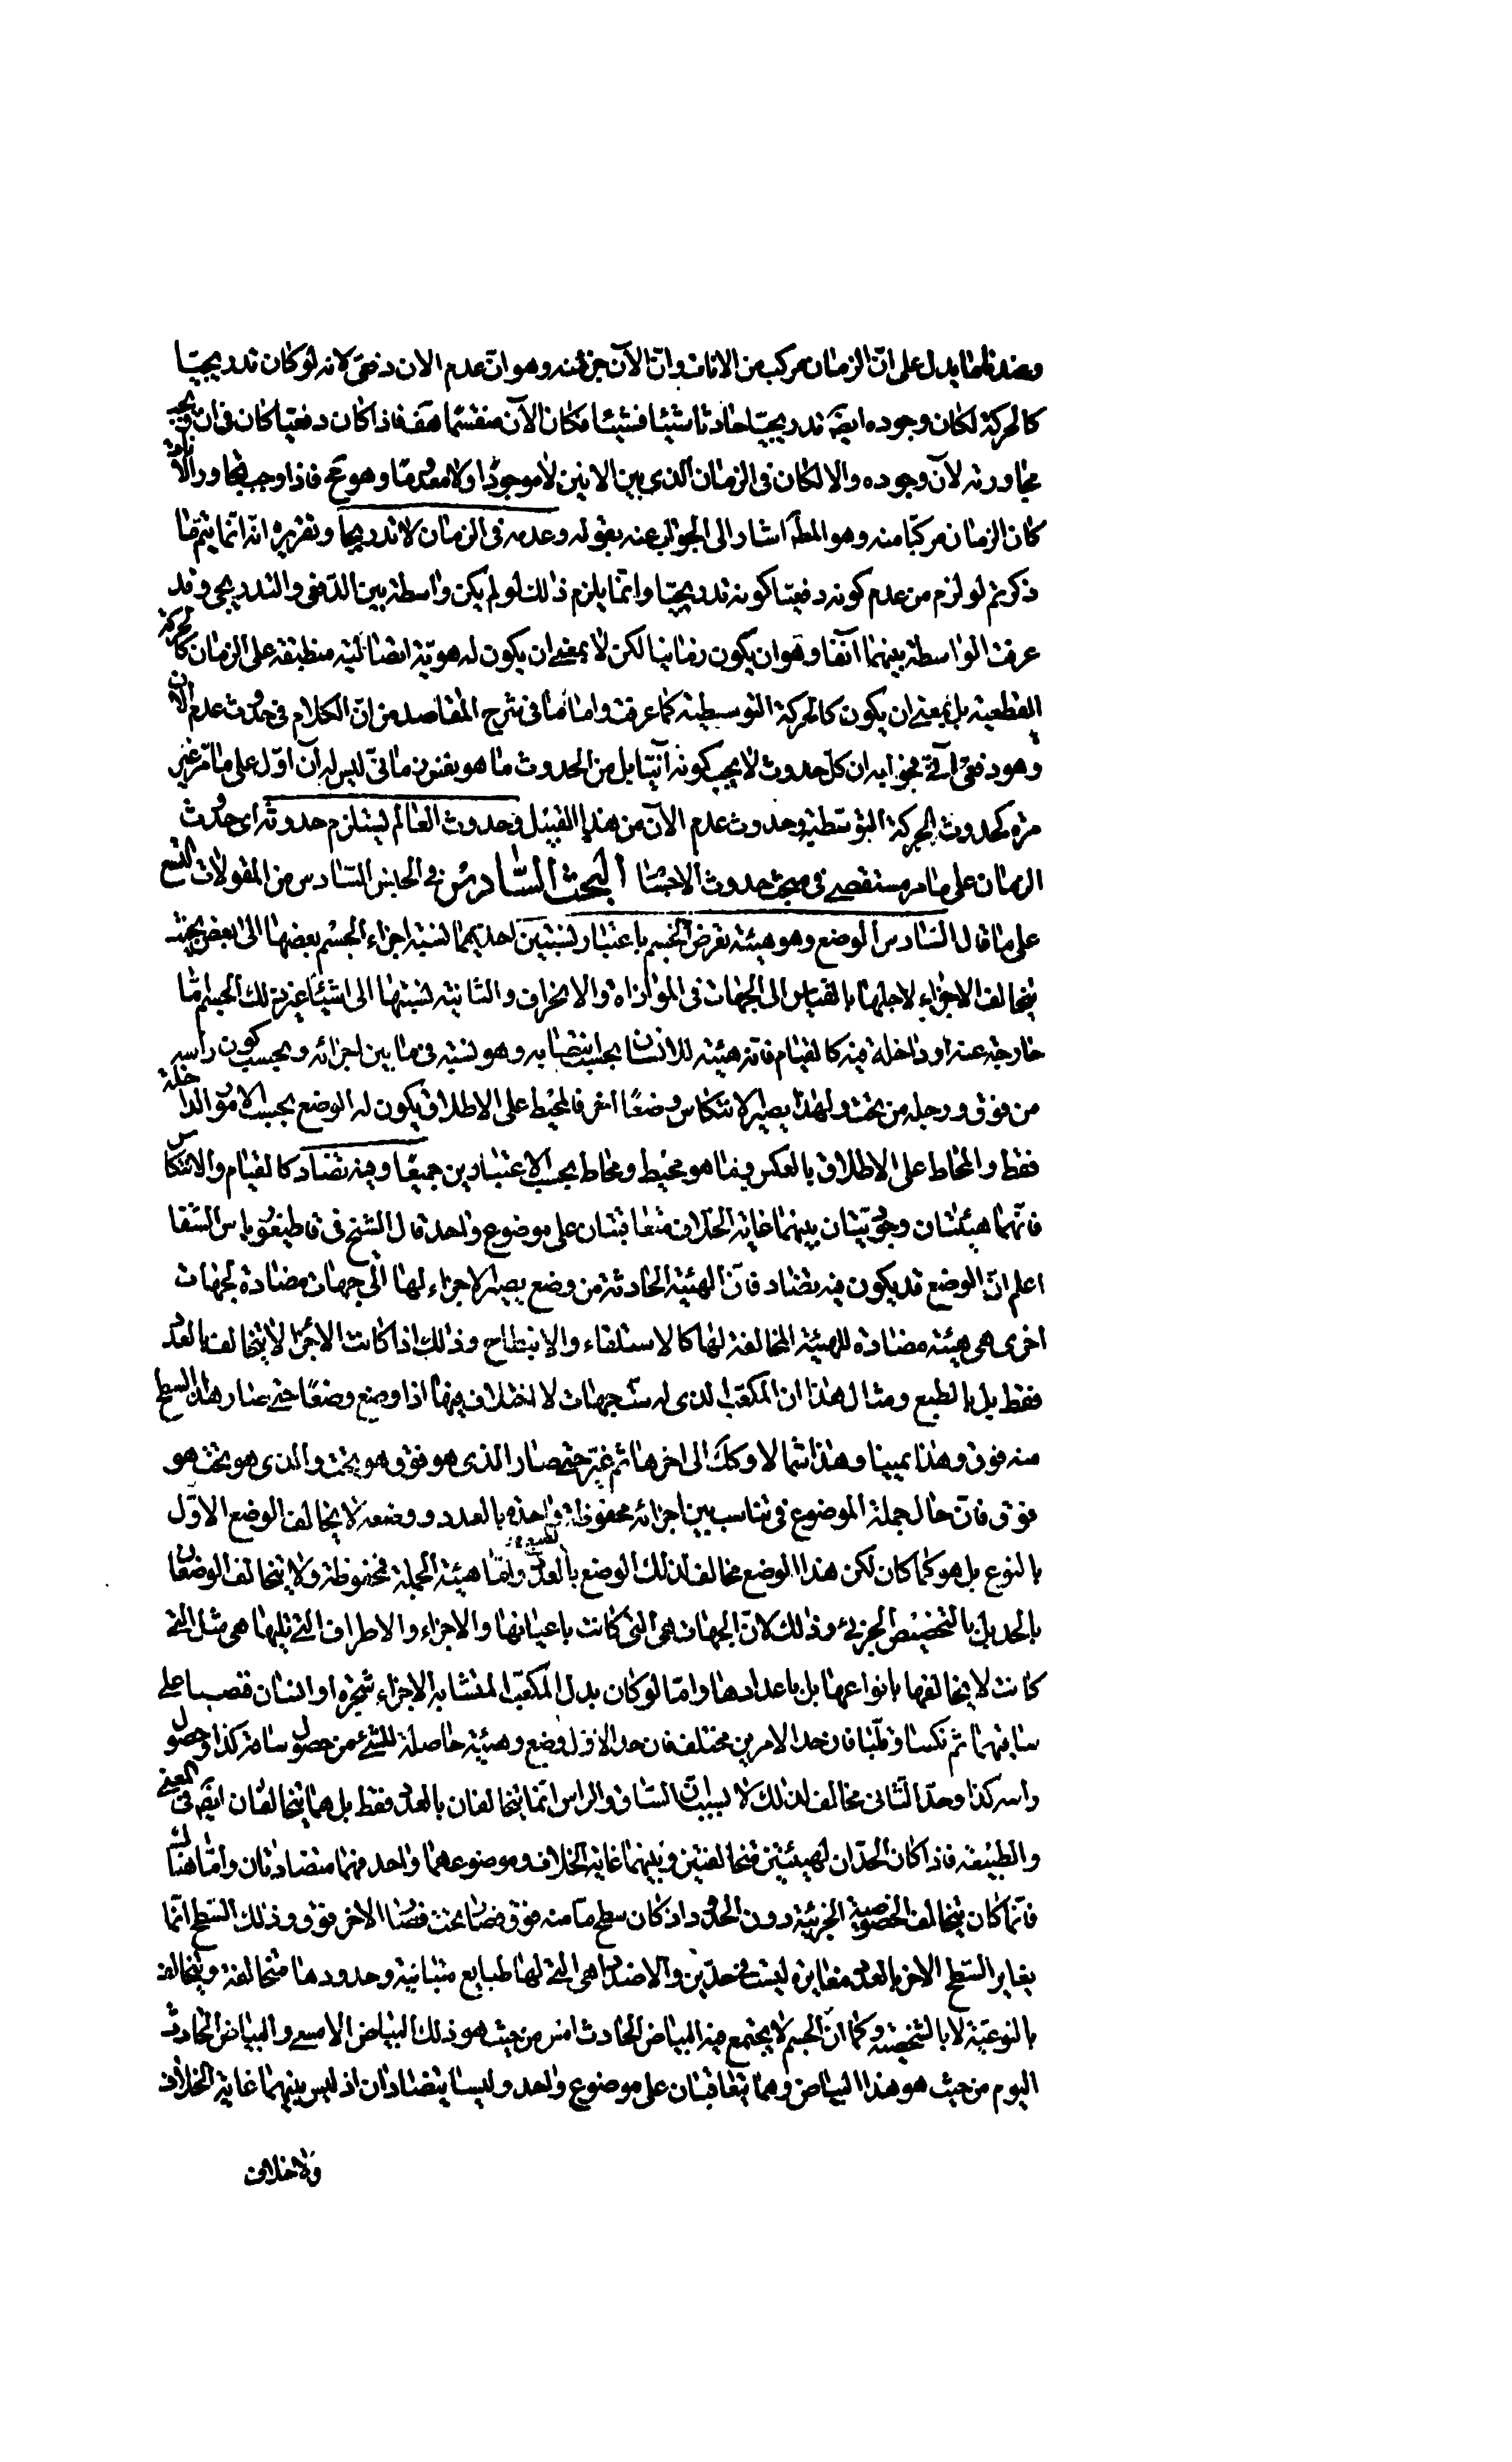 وضد فلما يدل على انّ الزمان مركب من الانات وانّ الآن جزء منه وهو انّ عدم الان دفعىّ لانه لو كان تدريجيّا
كالحركة لكان وجوده ايضَ تدريجيّا حادثا شيئا فشيئا فكان الآن منقسما هف فاذا كان دفعيا كان فى ان يجب
مجاورته لآن وجوده والا لكان فى الزمان الذى بين الانين لا موجودًا ولا معدوما وهو مح فاذا وجب تجاور الانات
كان الزمان مركبّا منه وهو المط اشار الى الجواب عنه بقوله وعدمه فى الزمان لا تدريجا وتقريره انّه انّما يتم ما
ذكرتم لو لزم من عدم كونه دفعيّا كونه تدريجيّا وانّما يلزم ذلك لو لم يكن واسطة بين الدّفعى والتدريجى وقد
عرفت الواسطة بينهما آنفا وهو ان يكون زمانيا لكن لا بمعنى ان يكون له هويّة اتصاليّة منطبقة على الزمان كالحركة
القطعية بل بمعنى ان يكون كالحركة التوسطية كما عرفت واما ما فى شرح المقاصد من انّ الكلام فى حدوث عدم الآن
وهو دفعىّ آنىّ فجوابه ان كل حدوث لا يجب كونه آنيّا بل من الحدوث ما هو بنفسه زمانىّ ليس له آن اوّل على ما مّر غير
مره كحدوث الحركة التوسّطية وحدوث عدم الآن من هذا القبيل وحدوث العالم يستلزم حدوثه اى حدوث
الزمان على ما مر مستقصى فى مبحث حدوث الاجسا البحث السّادس فى الجنس السّادس من المقولات التسع
على ما قال السّادس الوضع وهو هيئة تعرض للجسم باعتبار نسبتين احديهما نسبة اجزاء الجسم بعضها الى بعض بحيث
يتخالف الاجزاء لاجلها بالقياس الى الجهات فى الموازاة والانحراف والثانية نسبتها الى اشياء غير ذلك الجسم امّا
خارجة عنه او داخلة فيه كالقيام فانّه هيئة للانسان بحسب انتصابه وهو نسبة فى ما بين اجزائه وبحسب كون راسه
من فوق ورجله من تحت ولهذا يصير الانتكاس وضعًا اخر فالمحيط على الاطلاق يكون له الوضع بحسب الامور الداخلة
فقط والمحاط على الاطلاق بالعكس وفيما هو محيط ومحاط بحسب الاعتبارين جميعًا وفيه تضاد كالقيام والانتكاس
فانّهما هيئتان وجوديّتان بينهما غاية الخلاف متعاقبتان على موضوع واحد قال الشيخ فى قاطيغورياس الشفا
اعلم انّ الوضع قد يكون فيه تضاد فانّ الهيئة الحادثة من وضع يصير الاجزاء لها الى جهات مضادة لجهات
اخرى هى هيئة مضادة للهيئة المخالفة لها كالاستلقاء والانبطاح وذلك اذا كانت الاجزا لا يتخالف بالعدد
فقط بل بالطبع ومثال هذا ان المكعّب الذى له ستّ جهات لا اختلاف فيها اذا وضع وضعًا حتى صار هذا السطح
منه فوق وهذا يمينا وهذا شمالا وكك الى اخرها ثم غيّر حتى صار الذى هو فوق وهو تحت والذى هو تحت هو
فوق فانّ حال جملة الموضوع فى تناسب بين اجزائه محفوظة واحدة بالعدد ووضعه لا يخالف الوضع الاوّل
بالنوع بل هو كما كان لكن هذا الوضع مخالف لذلك الوضع بالعدد وامّا هيئة الجملة محفوظة ولا يتخالف الوضعان
بالحد بل بالتخصيص الجزئى وذلك لانّ الجهات هى التى كانت باعيانها والاجزاء والاطراف التى تليها هى مثل التى
كانت لا يخالفها بانواعها بل باعدادها وامّا لو كان بدل المكعّب المتشابه الاجزاء شجرة او انسان فنصبا على
ساقيهما ثم نكسا وقلّبا فان حد الامرين مختلف فان حد الاوّل وضع وهيئة حاصلة للشئ من حصول ساقه كذا وحصول
راسه كذا وحدّ الثّانى مخالف لذلك لا بسبب انّ السّاق والراس انّما يتخالفان بالعدد فقط بل هما يتخالفان ايضَ فى المعنى
والطبيعة فاذا كان الحدّان لهيئتين متخالفتين وبينهما غاية الخلاف وموضوعهما واحد فهما متضادتان وامّا هناك
فانّما كان يتخالف الخصوصية الجزئيّة دون الحدّ اذ كان سطح مّا منه فوق فصار تحت فصار الاخر فوق وذلك السّطح انّما
يغاير السّطح الاخر بالعدد مغايرة ليست فى حدّين والاضداد هى التى لها طبايع متباينة وحدودها متخالفة ويتخالف
بالنوعيّة لا بالشخصيّة وكما انّ الجسم لا يجتمع فيه البياض الحادث امس من حيث هو ذلك البياض الامسى والبياض الحادث
اليوم من حيث هو هذا البياض وهما يتعاقبان على موضوع واحد وليسا يتضادان اذ ليس بينهما غاية الخلاف
ولا خلاف